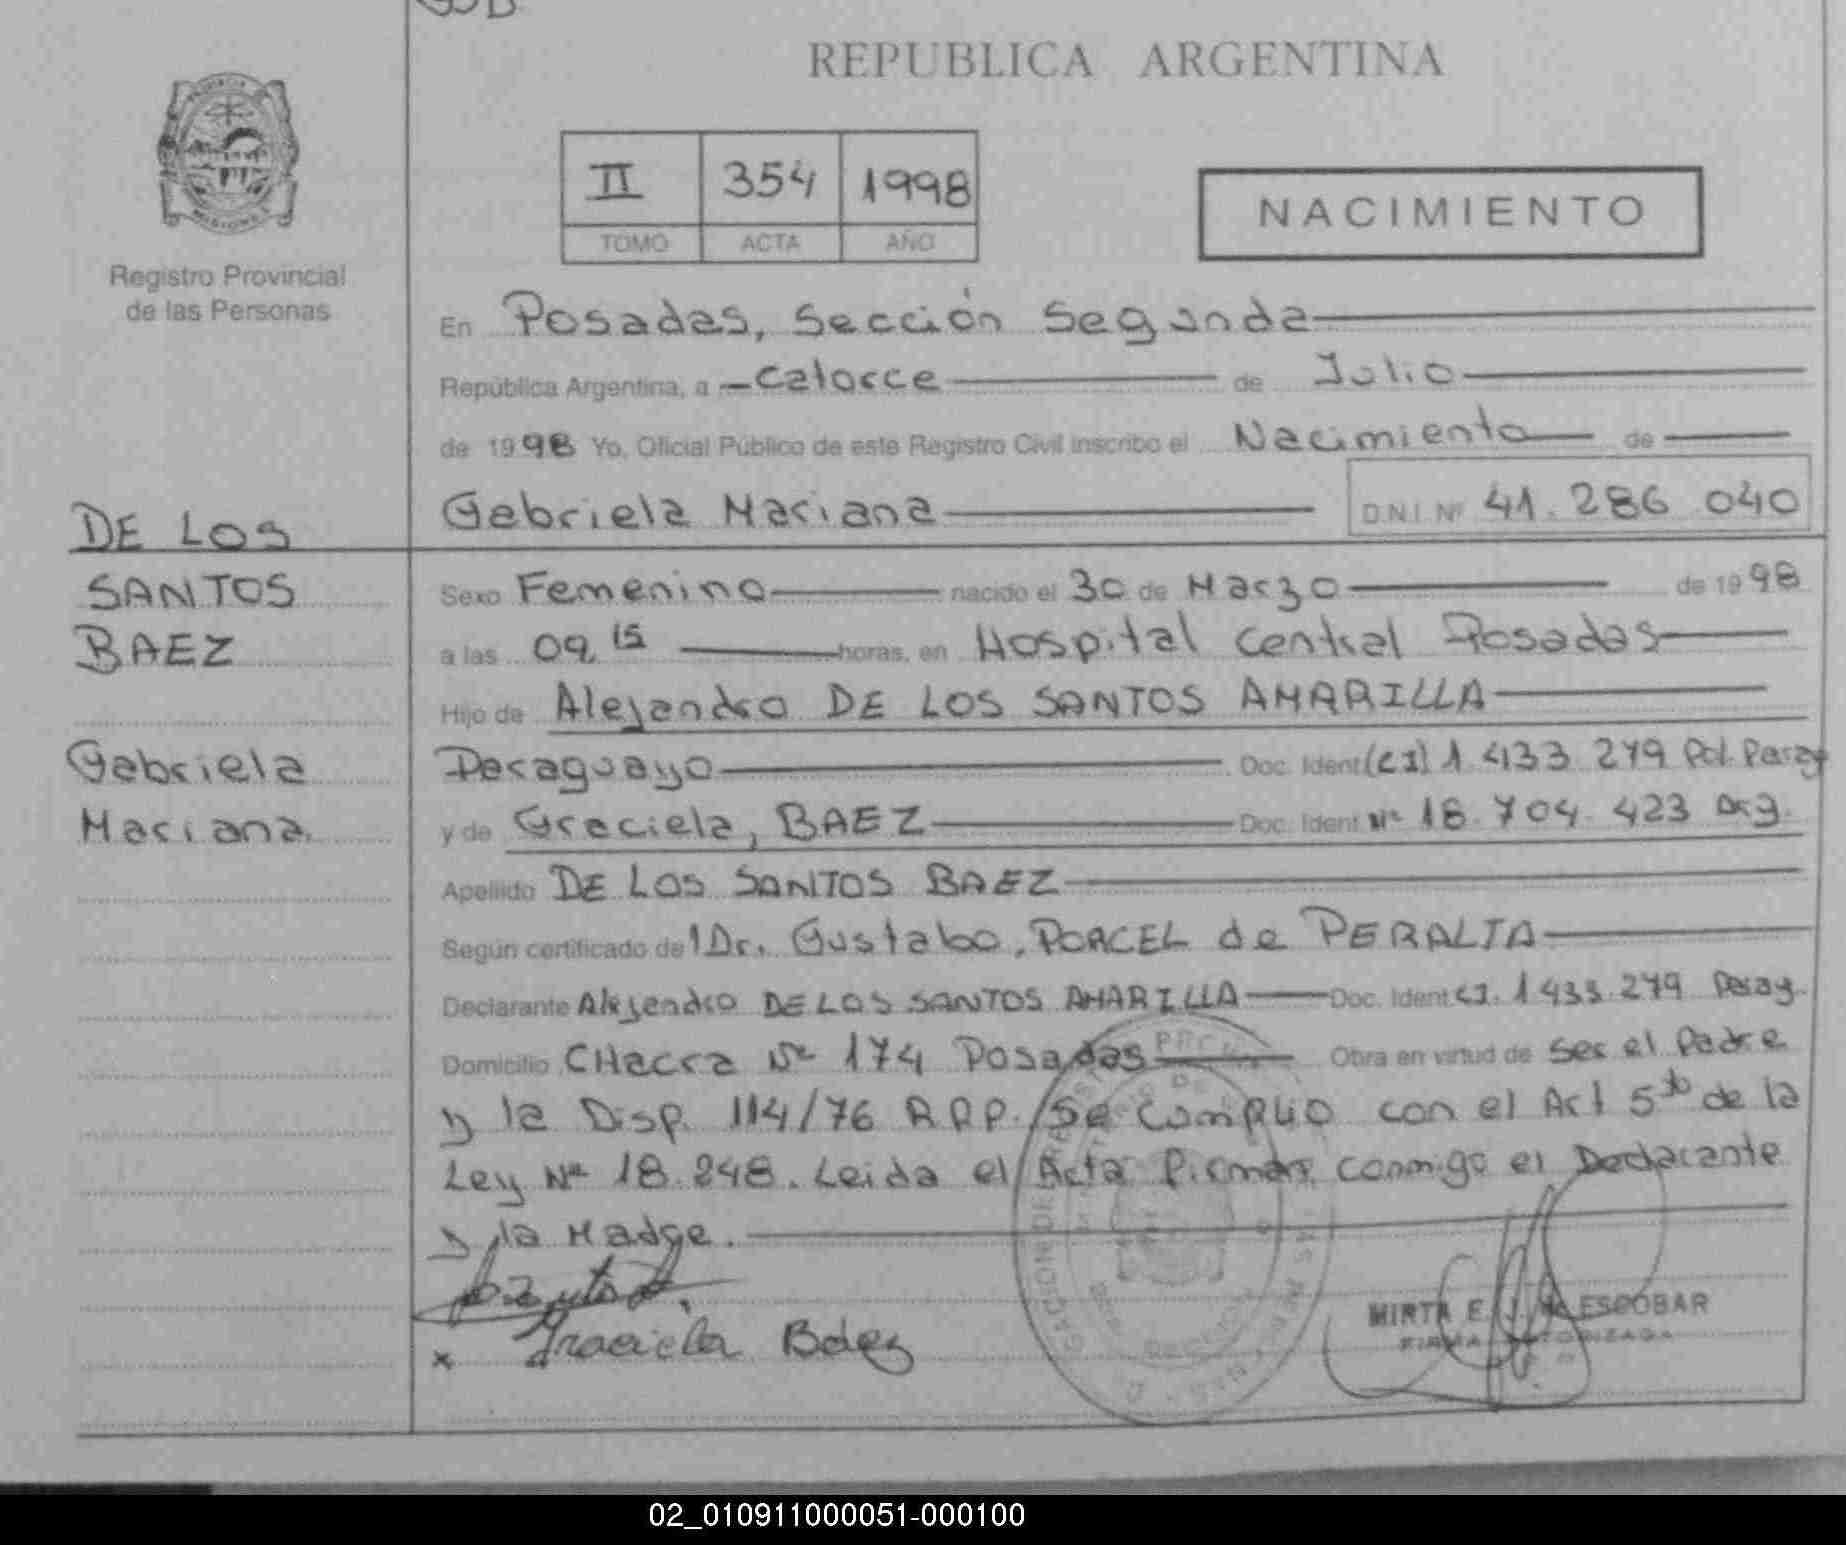 REPUBLICA ARGENTINA
II 354 1998
TOMO ACTA AÑO
NACIMIENTO
Registro Provincial
de las Personas
En Posadas, Sección Segunda
República Argentina, a Catorce de Julio
de 1998 Yo, Oficial Público de este Registro Civil inscribo el Nacimiento de
Gabriela Mariana D.N.I. Nº 41.286 040
DE LOS
SANTOS
BAEZ
Gabriela
Mariana
Sexo Femenino nacido el 30 de Marzo de 1998
a las 09,15 horas, en Hospital Central Posadas
Hijo de Alejandro DE LOS SANTOS AMARILLA
Paraguayo Doc. Ident (CI) 1.433.279 Pol. Paray
y de Graciela, BAEZ Doc. Ident Nº 18.704.423 Arg.
Apellido DE LOS SANTOS BAEZ
Según certificado del Dr. Gustabo, PORCEL de PERALTA
Declarante Alejandro DE LOS SANTOS AMARILLA Doc. Ident CI. 1433.279 Paray.
Domicilio CHacra Nº 174 Posadas Obra en virtud de Ser el Padre
y la Disp. 114/76 RPP. Se Cumplio con el Art 5to de la
Ley Nº 18.248. Leida el Acta firman conmigo el Declarante
y la Madre.
x Graciela Baez
MIRTA E. ESCOBAR
FIRMA AUTORIZADA
02_010911000051-000100